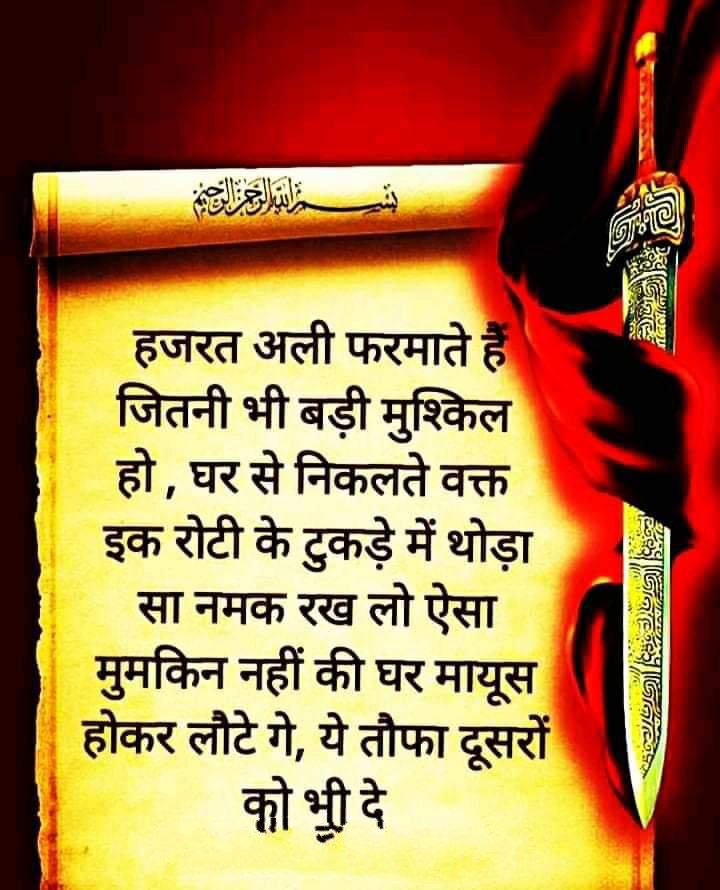 بسم الله الرحمن الرحيم
हजरत अली फरमाते हैं
जितनी भी बड़ी मुश्किल
हो , घर से निकलते वक्त
इक रोटी के टुकड़े में थोड़ा
सा नमक रख लो ऐसा
मुमकिन नहीं की घर मायूस
होकर लौटे गे, ये तौफा दूसरों
को भी दे